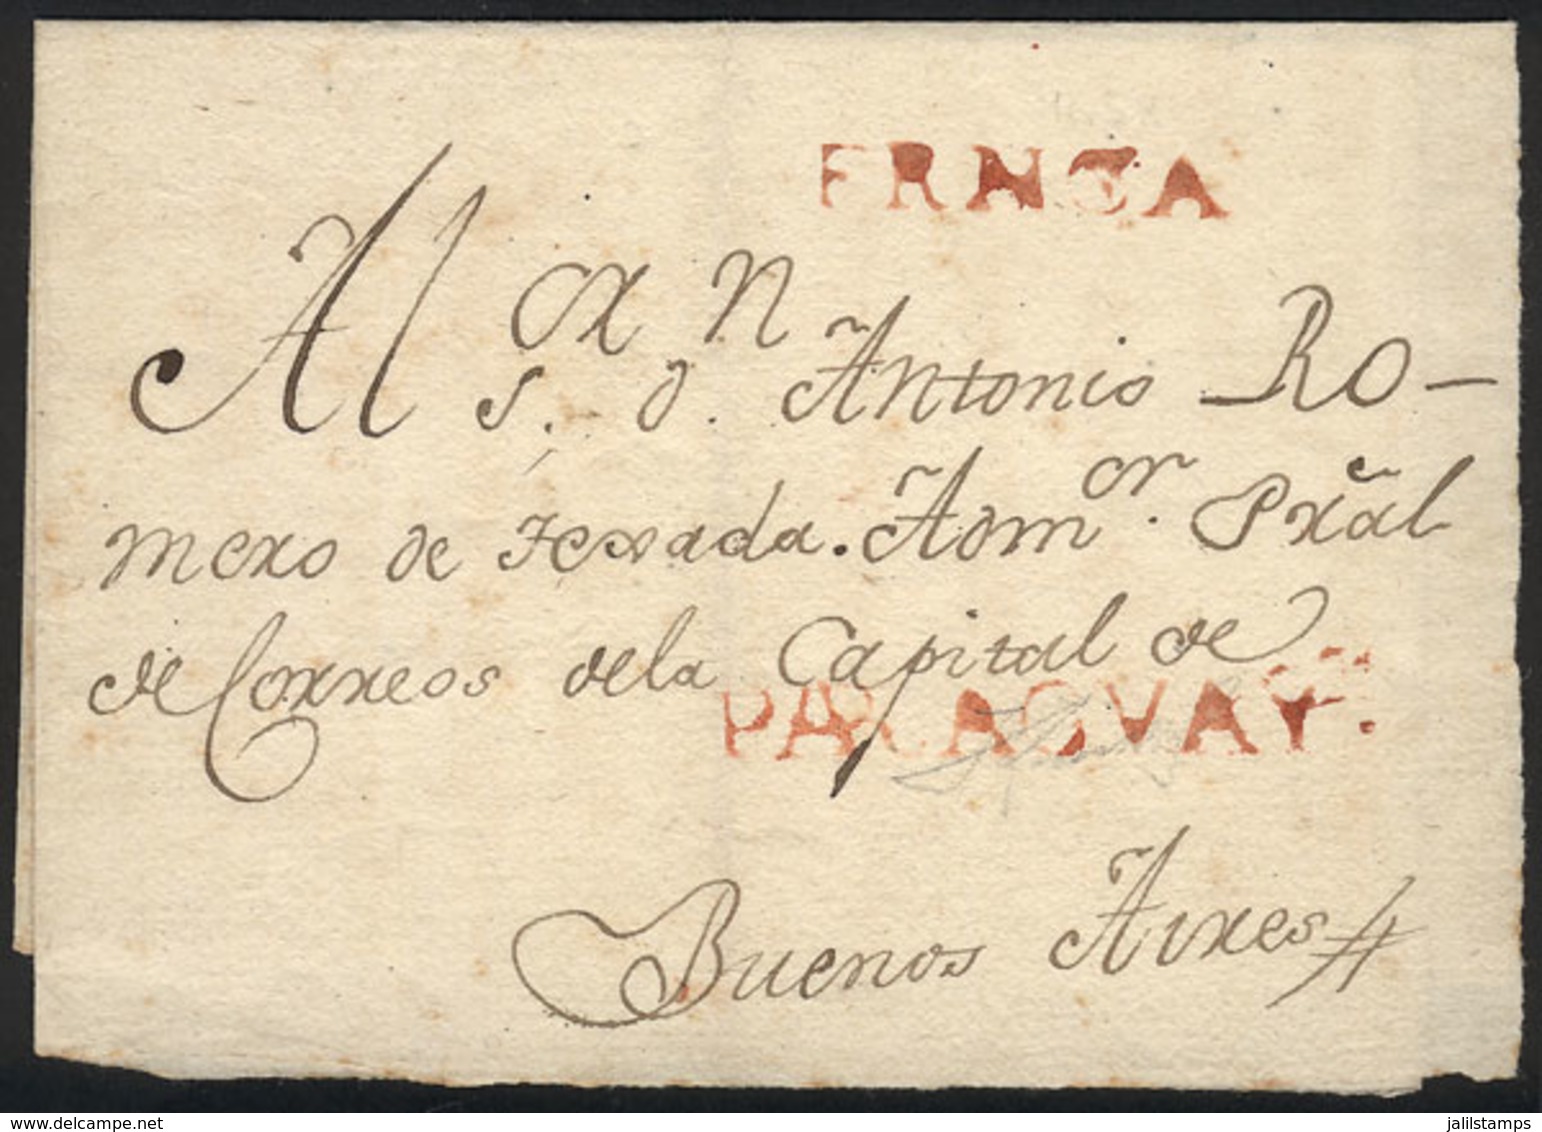 FRNCA
Al Sor. Dn. Antonio Ro-
mero de Texada. Admor. Pral
de Correos dela Capital de
PARAGUAY.
Buenos Aires
delcampe.net
jalilstamps